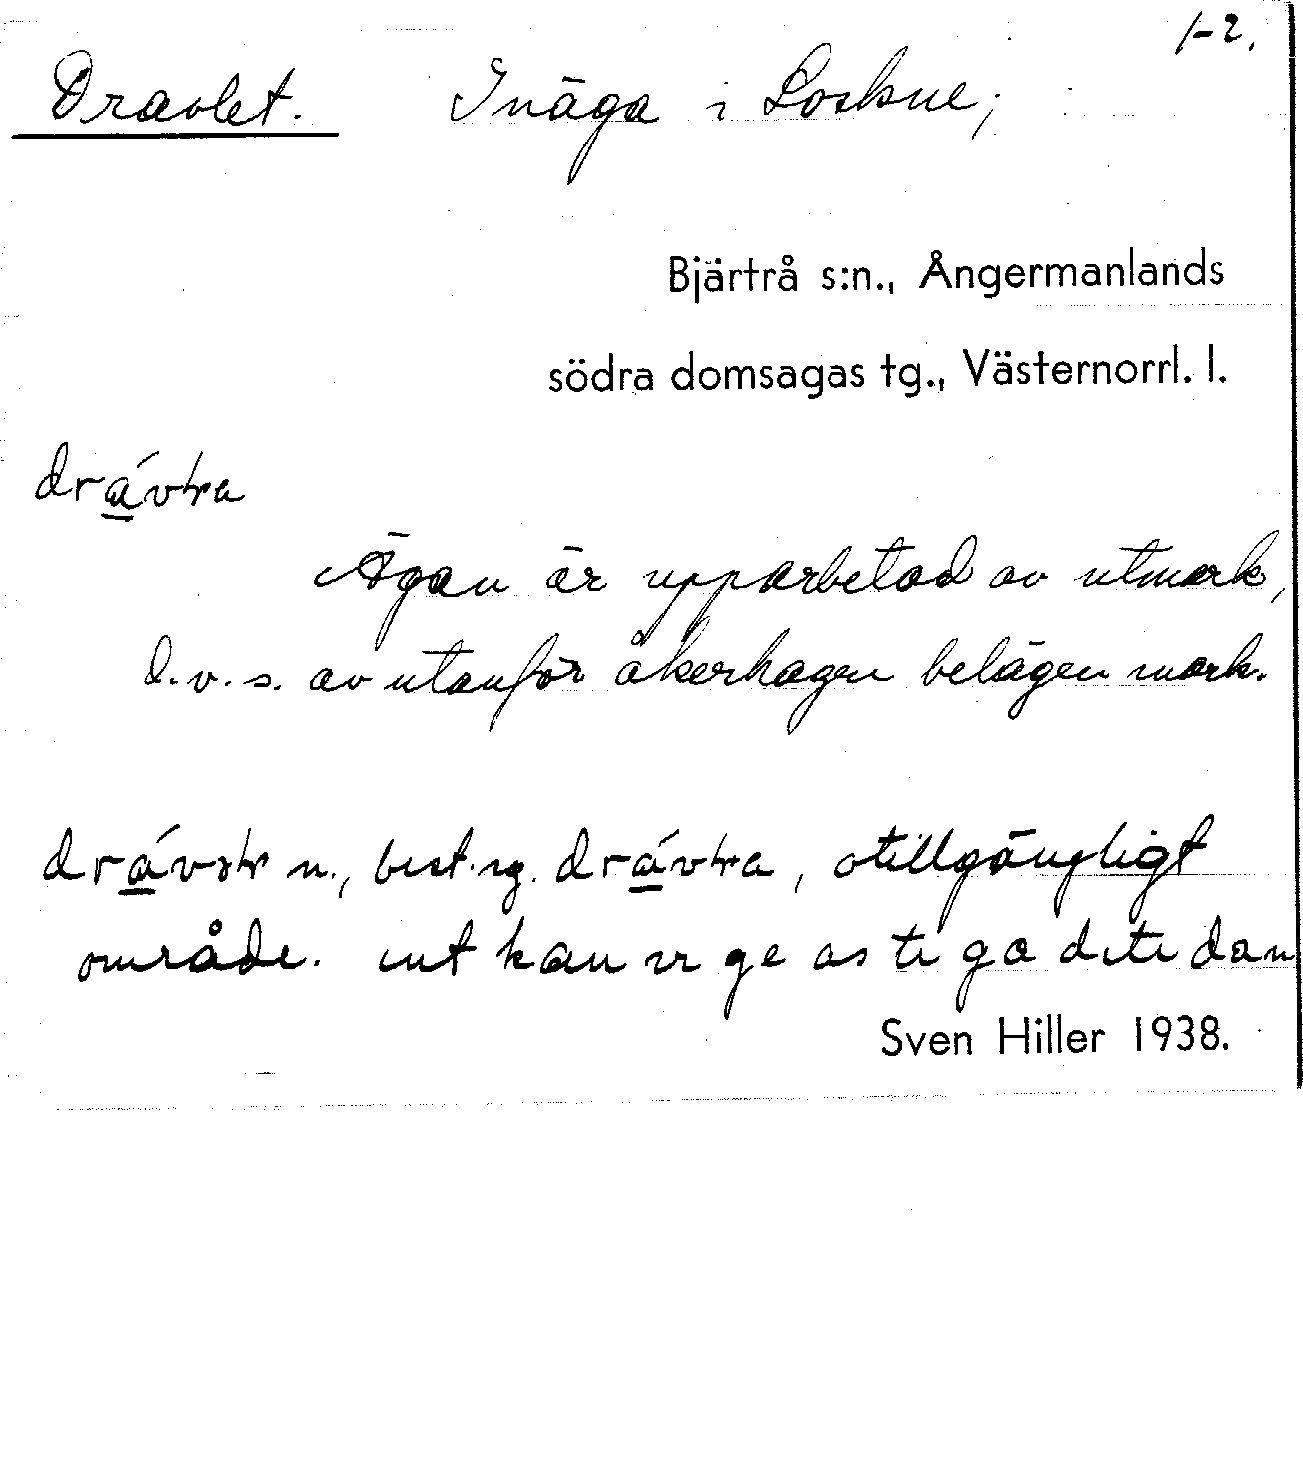 1-2.
Dravlet. Inäga i Loskne;
Bjärtrå s:n., Ångermanlands
södra domsagas tg., Västernorrl. l.
Ägan är upparbetad av utmark,
d.v.s. av utanför åkerhagen belägen mark.
n., best. sg. otillgängligt
område. int kan ge as te ga dan
Sven Hiller 1938.